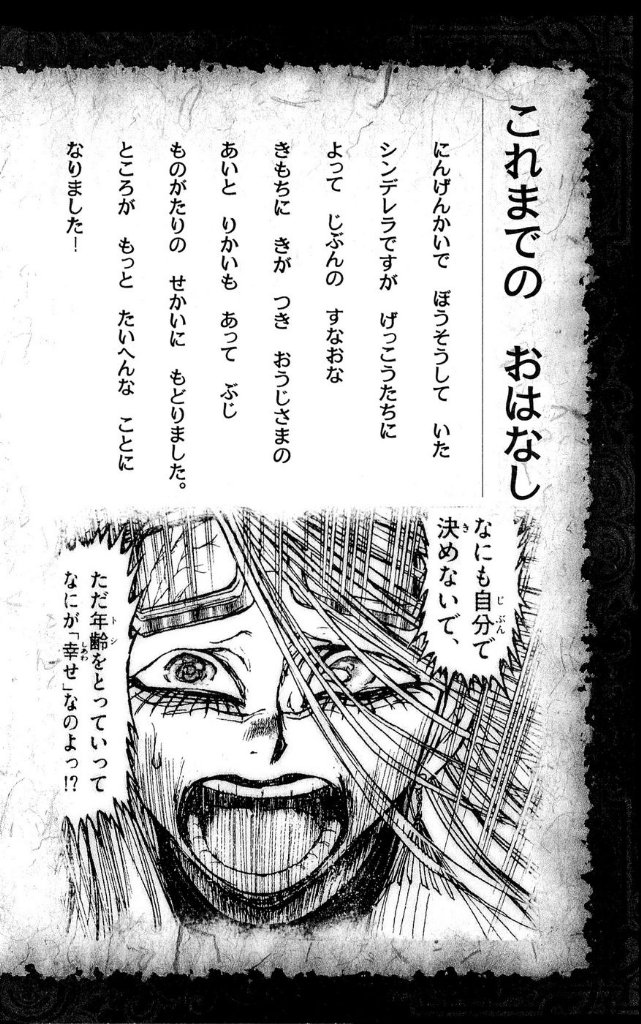 これまでの おはなし
にんげんかいで ぼうそうして いた
シンデレラですが げっこうたちに
よって じぶんの すなおな
きもちに きが つき おうじさまの
あいと りかいも あって ぶじ
ものがたりの せかいに もどりました。
ところが もっと たいへんな ことに
なりました!
なにも自分で
決めないで、
ただ年齢をとっていって
なにが「幸せ」なのよっ!?